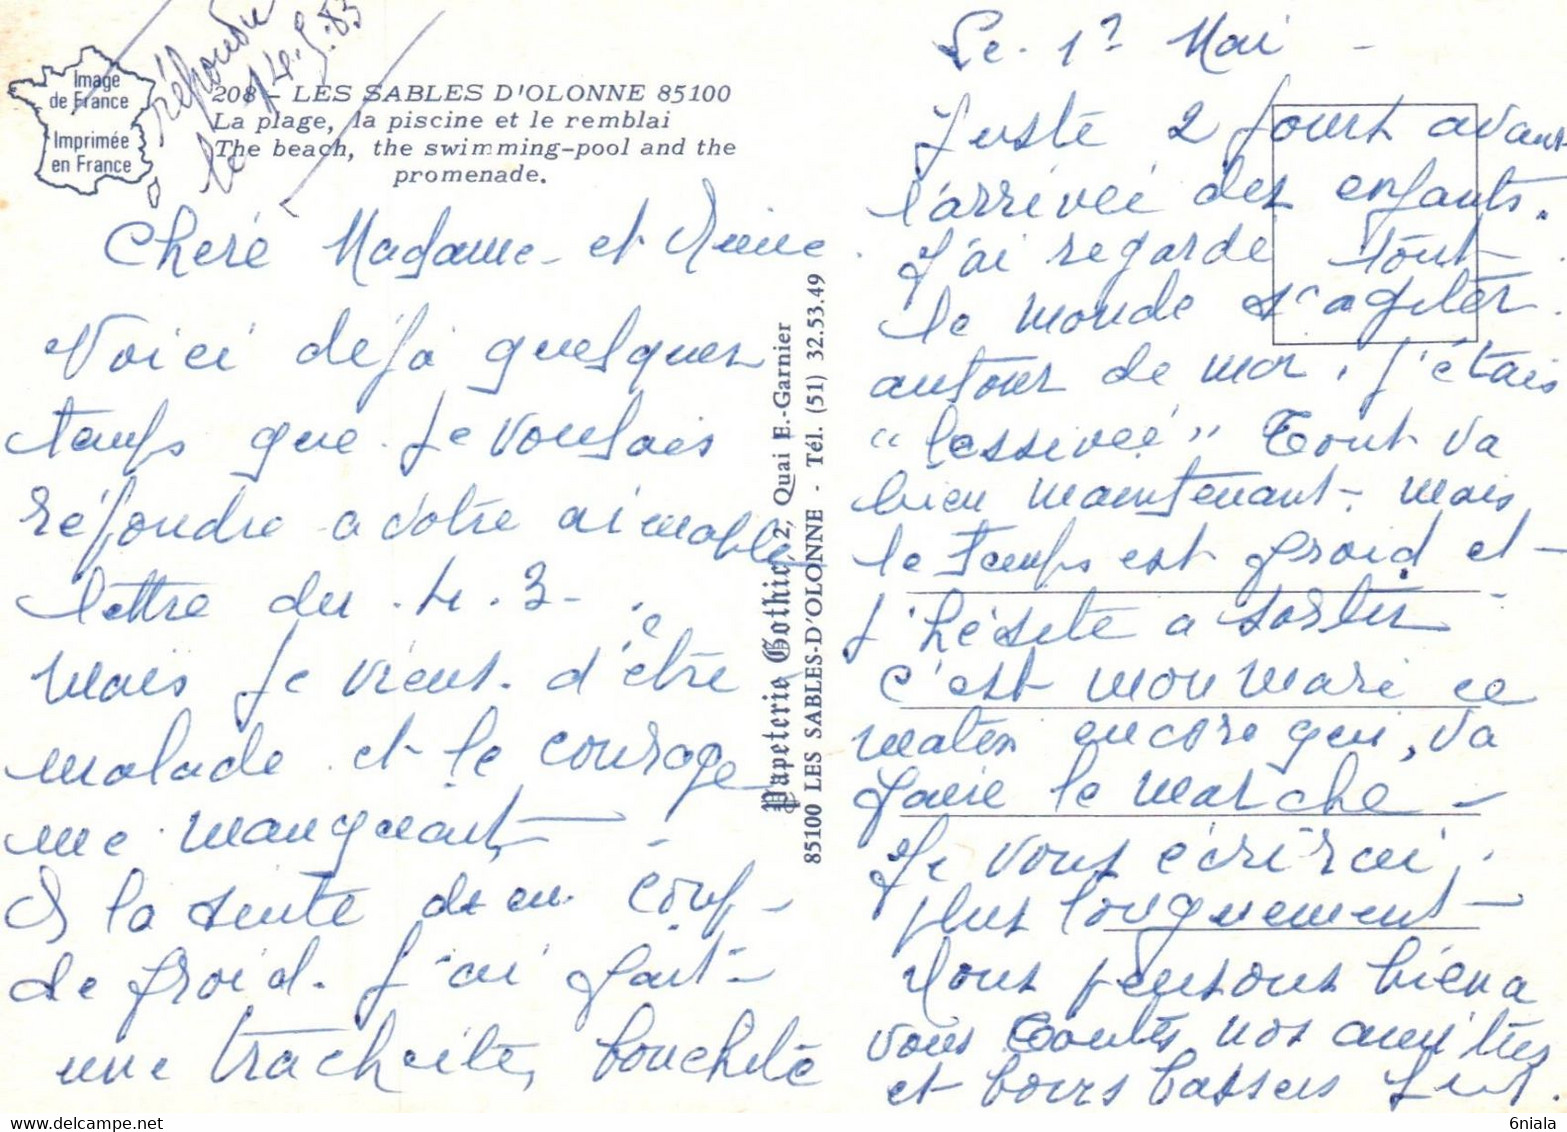 répondu
le 14.5.83
Image
de France
Imprimée
en France
208 - LES SABLES D'OLONNE 85100
La plage, la piscine et le remblai
The beach, the swimming-pool and the
promenade.
Cheré Madame et
Voici déjà quelques
temps que je voulais
répondre a votre aimable
lettre du 4.3-
mais je viens d'être
malade et le courage
me manquant
A la suite d'un coup
de froid. J'ai fait
une tracheite, bouchité
Papeterie Gothic, 2, Quai E.-Garnier
85100 LES SABLES-D'OLONNE - Tél. (51) 32.53.49
Le 1er Mai -
Juste 2 jours avant
l'arrivée des enfants.
J'ai regarde tout
le monde s'agiter
autour de moi, j'étais
"lessiveé" Tout va
bien maintenant - mais
le temps est froid et
j'hésite a sortir
c'est mon mari ce
matin encore qui, va
faire le marche -
Je vous écrirai
plus longuement -
Nous pensons bien a
vous toutes nos amitiés
et bons baisers
6niala